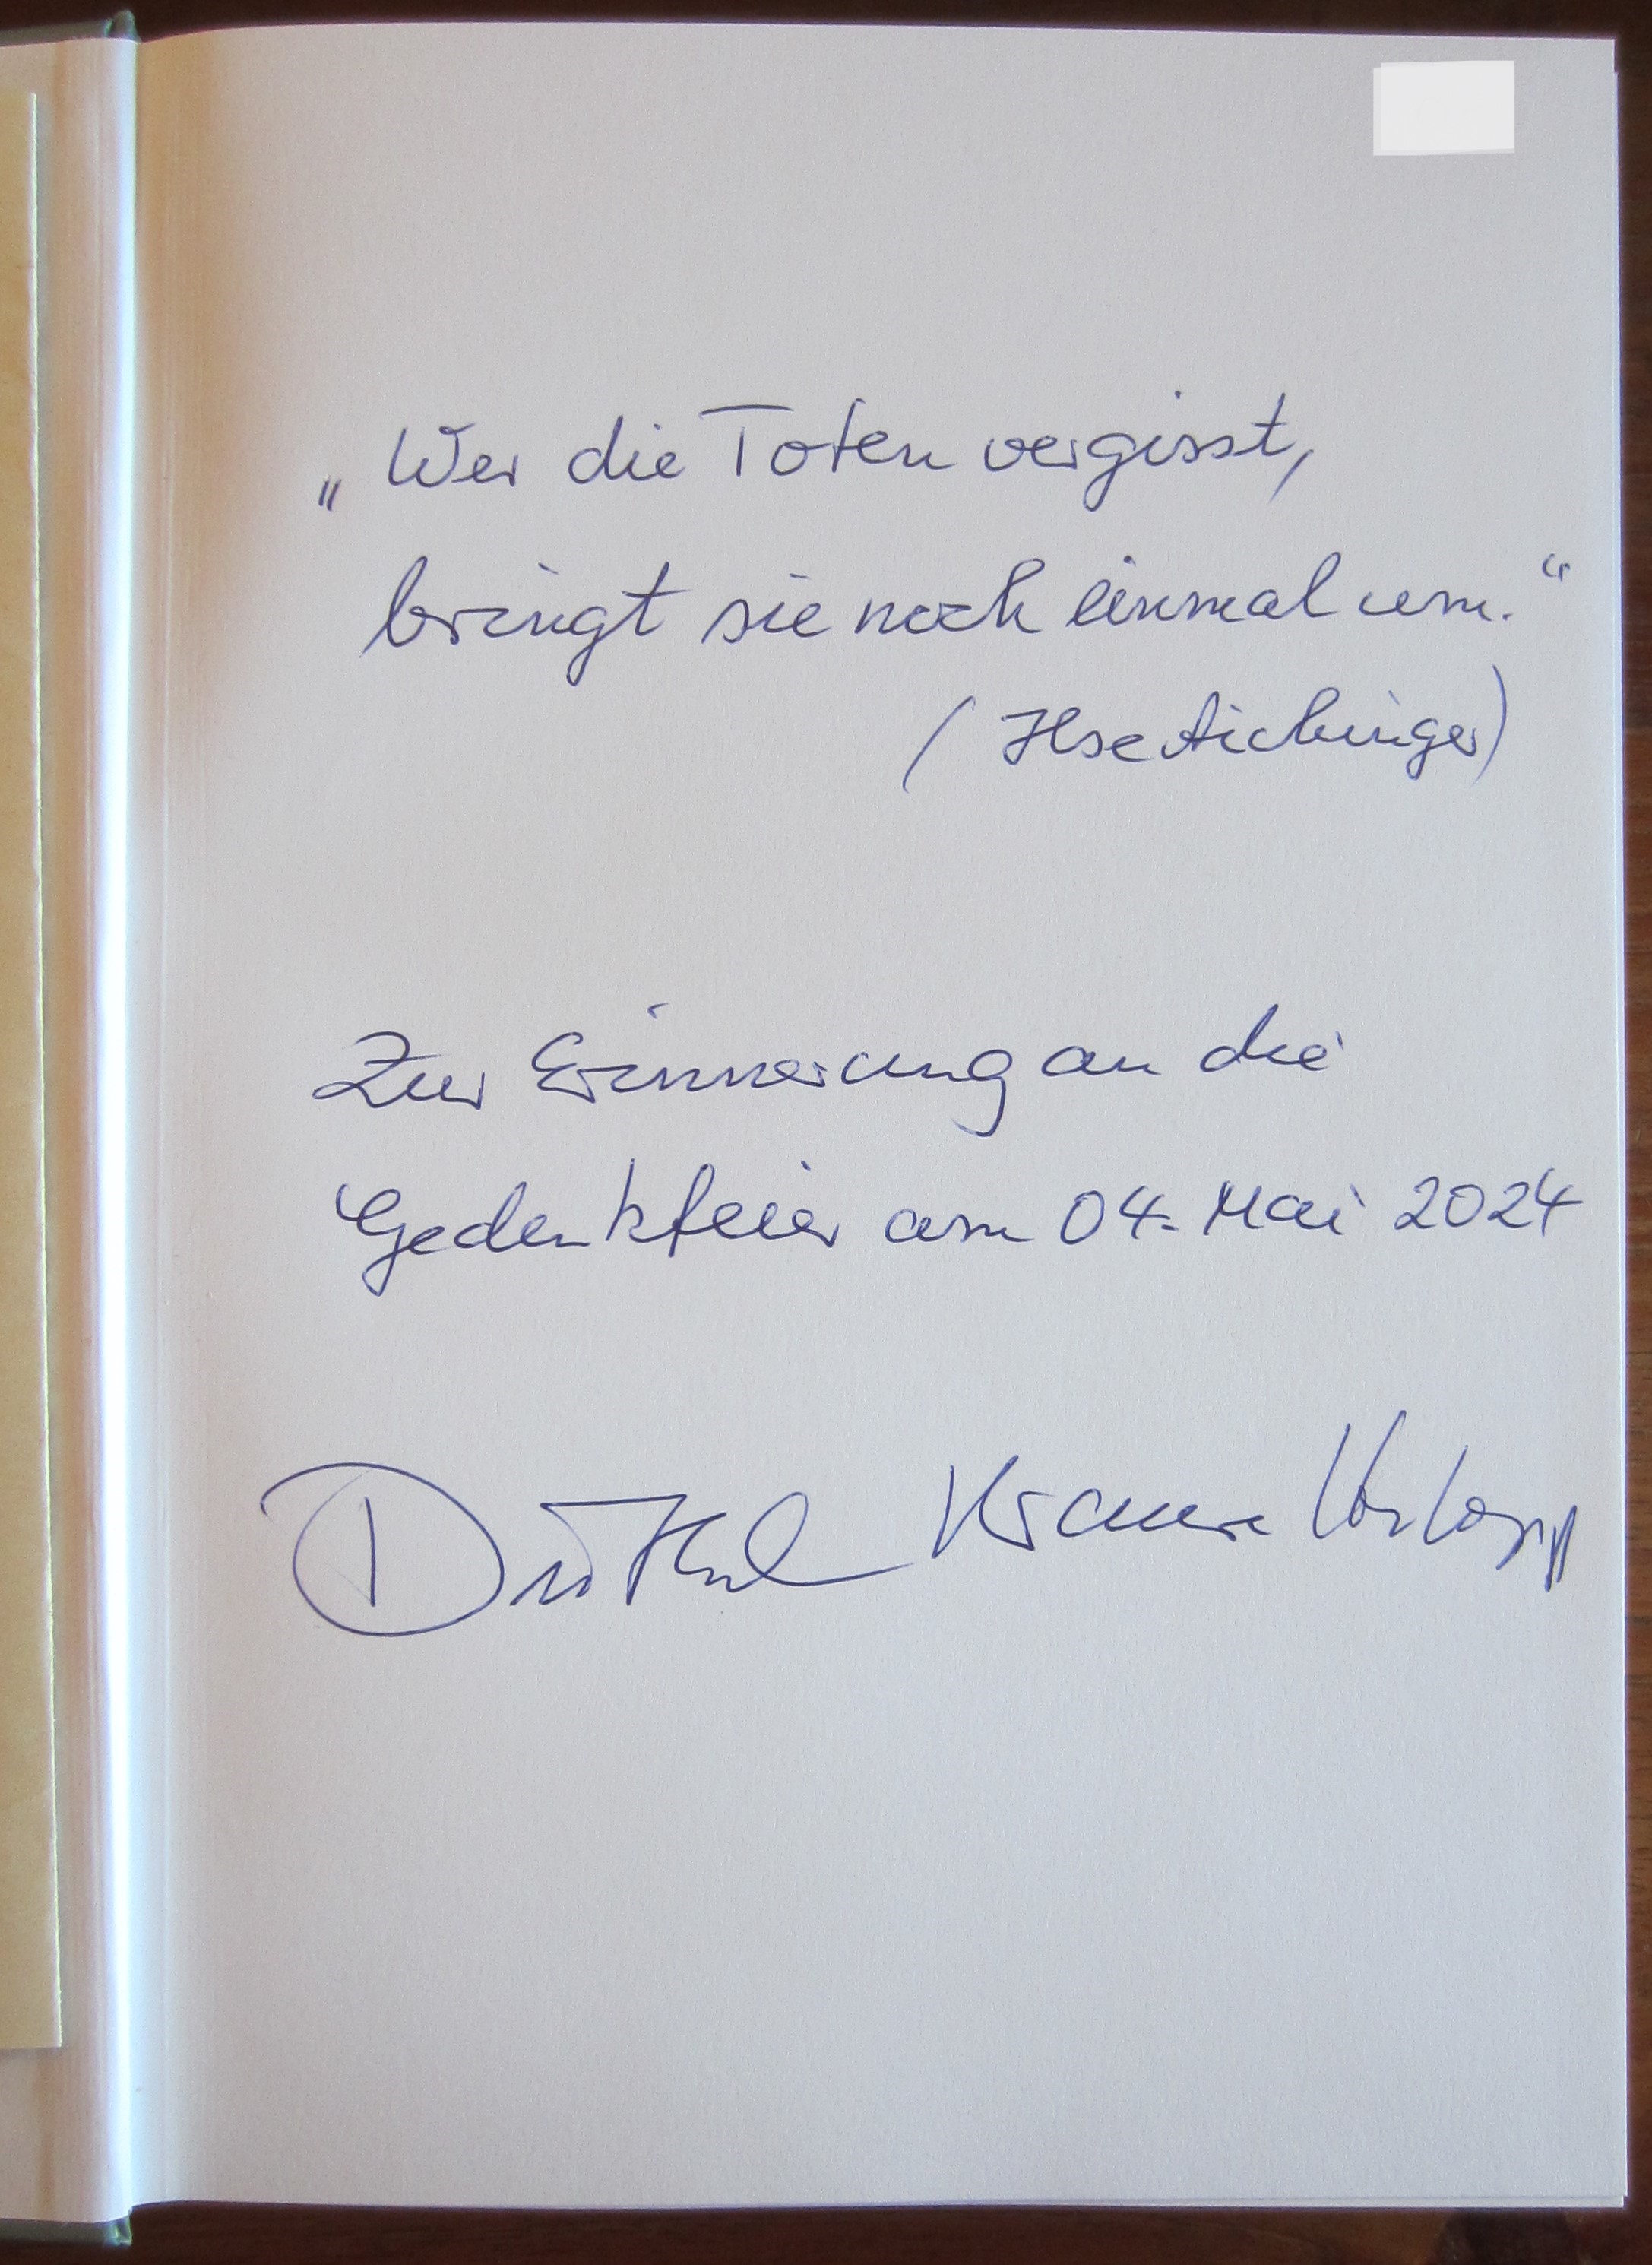 „Wer die Toten vergisst,
bringt sie noch einmal um.“
(Ilse Aichinger)
Zur Erinnerung an die
Gedenkfeier am 04. Mai 2024